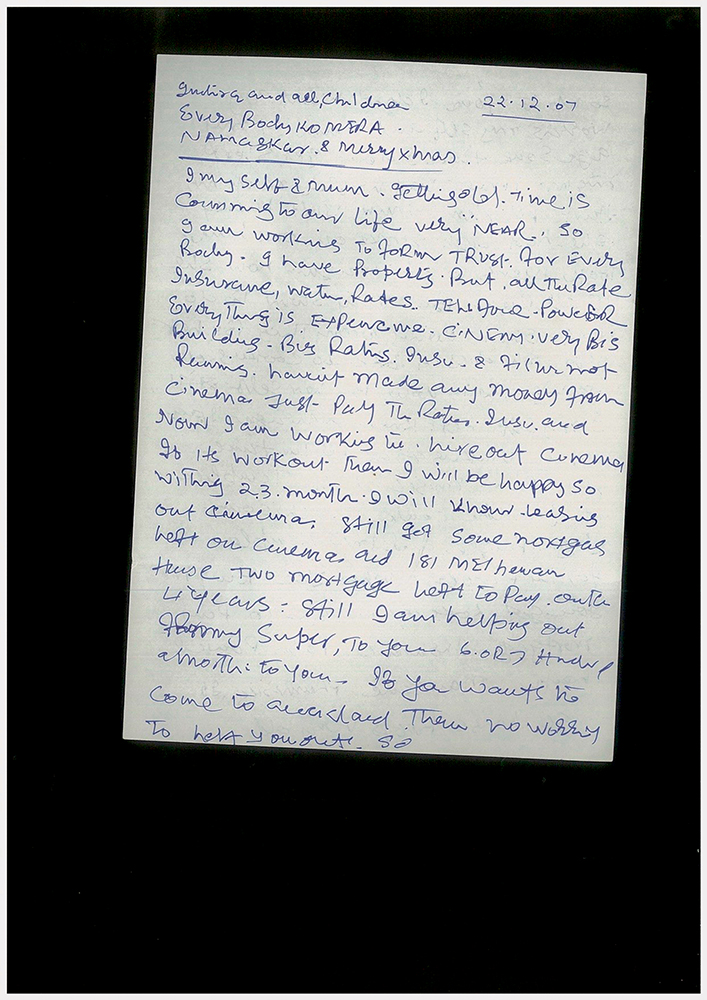 Indira and all, Children 22.12.07
Every Body KO MERA.
NAMasKar. & Merry xmas.
I my Self & mum. Getting old. Time is
Comming to our Life very NEAR. So
I am working TO FORM TRUST. For Every
Body. I have Property. But. all The Rate
Insurance, water, Rates. TEL. Power
EveryThing is EXPencive. CiNEMA. very Big
Building. Big Rates. Insu. & Film not
Running. havint Made any money From
Cinema Just Pay The Rates. Insu. and
Now I am working to. hire out Cinema
If its workout Then I will be happy So
withing 2.3. month. I will know leasing
out Cinema. Still got Some mortgag
Left on Cinema and 181
These Two mortgage Left To Pay.
4 years. Still I am helping out
my Super, To your 6. OR 7
amoth: to You. If You wants to
Come to Then no worry
To help you out. So